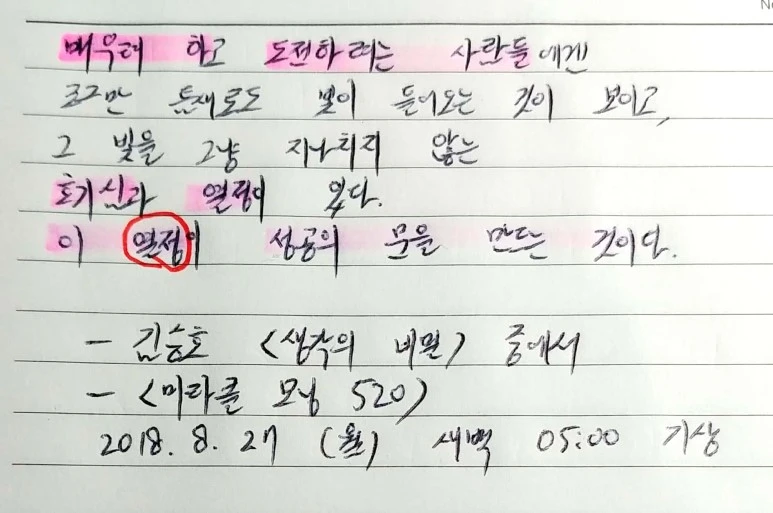 배우려 하고 도전하려는 사람들에겐
조그만 틈새로도 빛이 들어오는 것이 보이고,
그 빛을 그냥 지나치지 않는
호기심과 열정이 있다.
이 열정이 성공의 문을 만드는 것이다.
- 김승호 <생각의 비밀> 중에서
- <미라클 모닝 520>
2018. 8. 27 (월) 새벽 05:00 기상